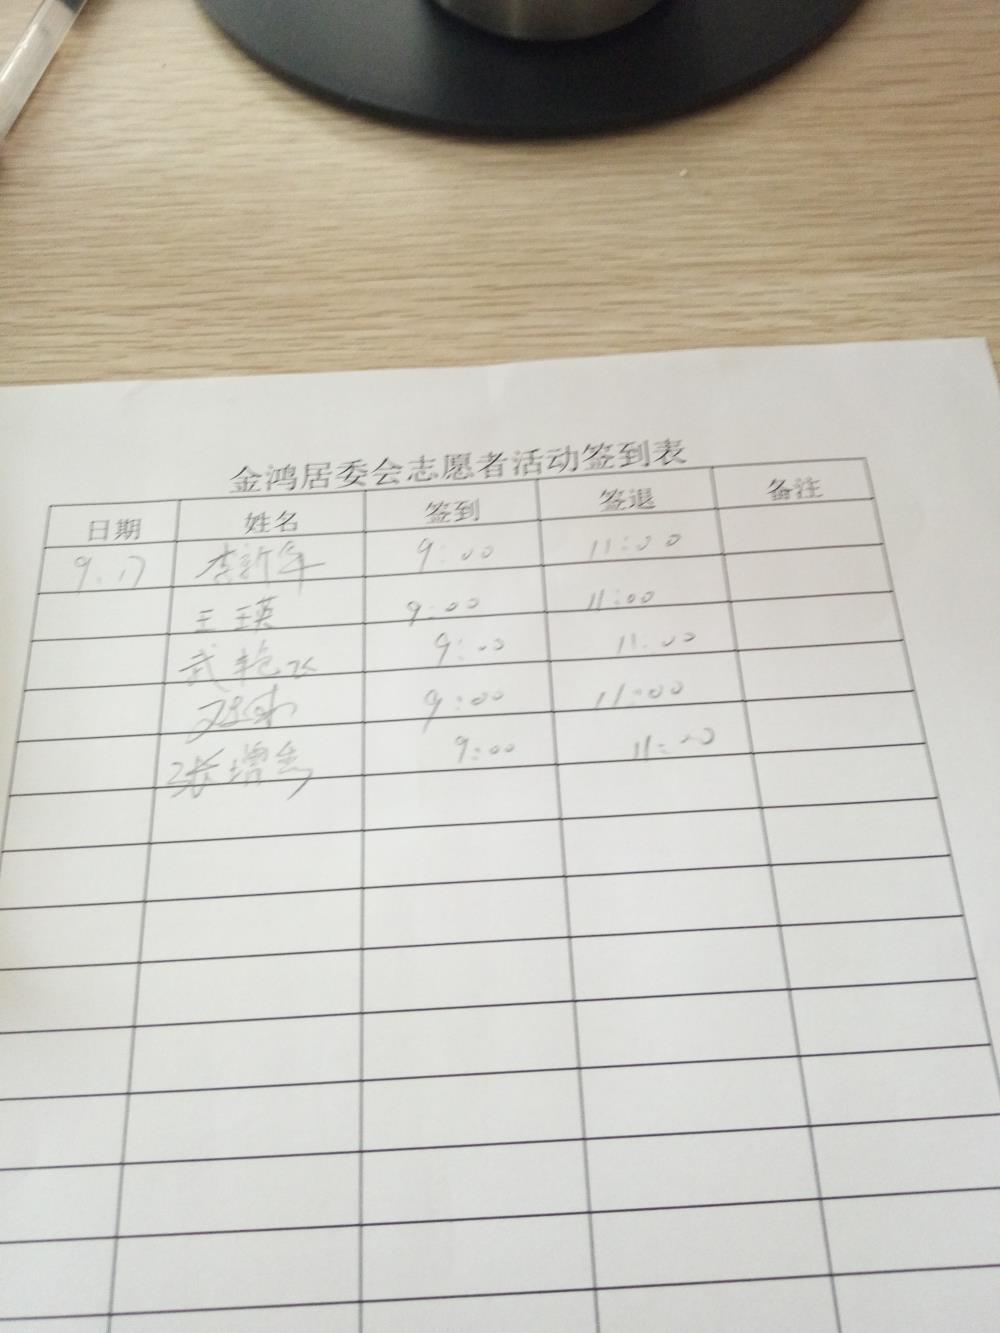 金鸿居委会志愿者活动签到表
日期 姓名 签到 签退 备注
9.17 李新年 9:00 11:00
王瑛 9:00 11:00
武艳 9:00 11:00
9:00 11:00
张增 9:00 11:00